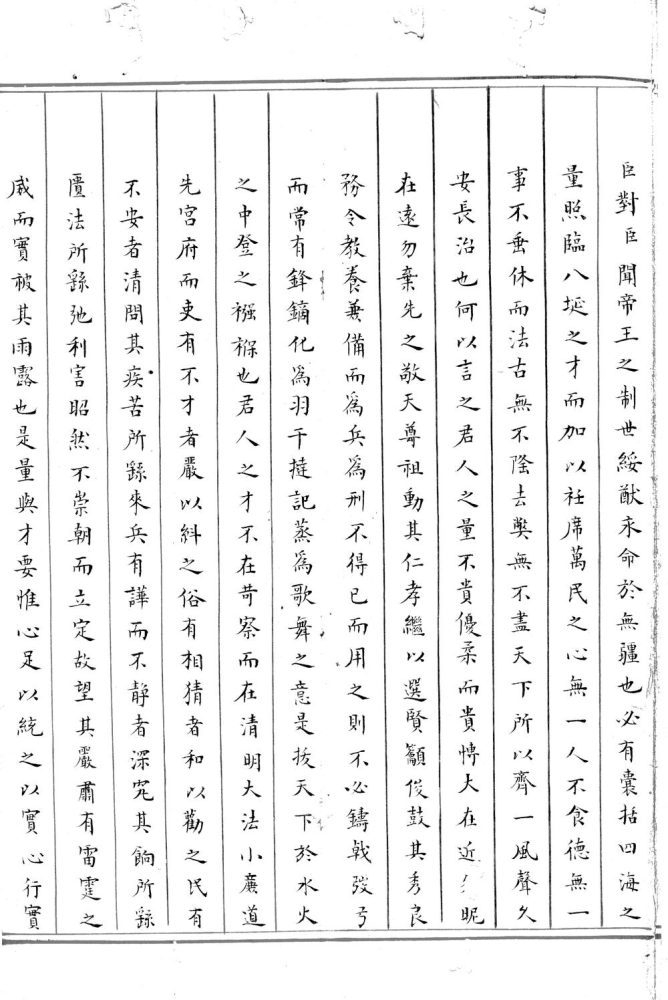 臣對臣聞帝王之制世綏猷永命於無疆也必有囊括四海之
量照臨八埏之才而加以衽席萬民之心無一人不食德無一
事不垂休而法古無不隆去弊無不盡天下所以齊一風聲久
安長治也何以言之君人之量不貴優柔而貴愽大在近勿昵
在遠勿棄先之敬天尊祖動其仁孝繼以選賢籲俊鼓其秀良
務令教養兼備而為兵為刑不得已而用之則不必鑄戟弢弓
而常有鋒鏑化為羽干撻記蒸為歌舞之意是拔天下於水火
之中登之襁褓也君人之才不在苛察而在清明大法小廉道
先宮府而吏有不才者嚴以糾之俗有相猜者和以勸之民有
不安者清問其疾苦所繇來兵有譁而不静者深究其餉所繇
匱法所繇弛利害昭然不崇朝而立定故望其嚴肅有雷霆之
威而實被其雨露也是量與才要惟心足以統之以實心行實